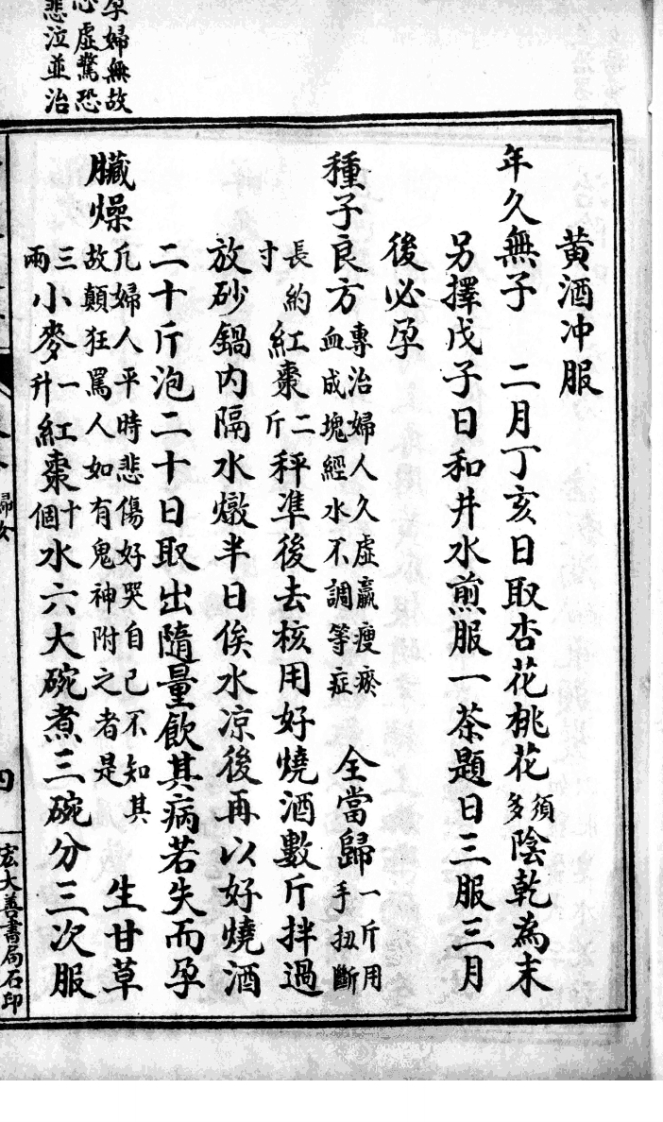 孕婦無故
心虛驚恐
悲泣並治
黃酒冲服
年久無子　二月丁亥日取杏花桃花須多陰乾為末
另擇戊子日和井水煎服一茶題日三服三月
後必孕
種子良方專治婦人久虛羸瘦瘀血成塊經水不調等症　全當歸一斤用手扭斷
長約寸紅棗二斤秤準後去核用好燒酒數斤拌過
放砂鍋内隔水燉半日俟水凉後再以好燒酒
二十斤泡二十日取出隨量飲其病若失而孕
臟燥凢婦人平時悲傷好哭自己不知其故顛狂罵人如有鬼神附之者是　生甘草
三兩小麥一升紅棗十個水六大碗煮三碗分三次服
婦女
四
宏大善書局石印